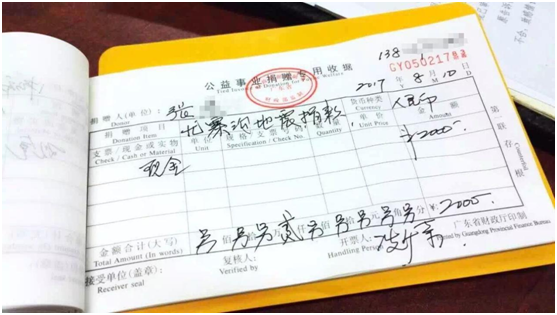 138
公益事业捐赠专用收据
GY0502178
2017 年 8 月 10 日
捐赠人(单位): 张
Donor
捐赠项目
Donation Item
九寨沟地震捐款
货币种类
Currency
人民币
支票/现金或实物
Check / Cash or Material
单位
Unit
规格/支票号码
Specification / Check No.
数量
Quantity
单价
Unit Price
金额
Amounts
现金
¥2000
第一联存根
金额合计(大写)
Total Amount (In words)
另佰另另贰仟另佰另拾另元另角另分 ¥:2000
接受单位(盖章):
Receiver seal
复核人:
Verified by
开票人:
Handling Person
广东省财政厅印制
Printed by Guangdong Provincial Finance Bureau